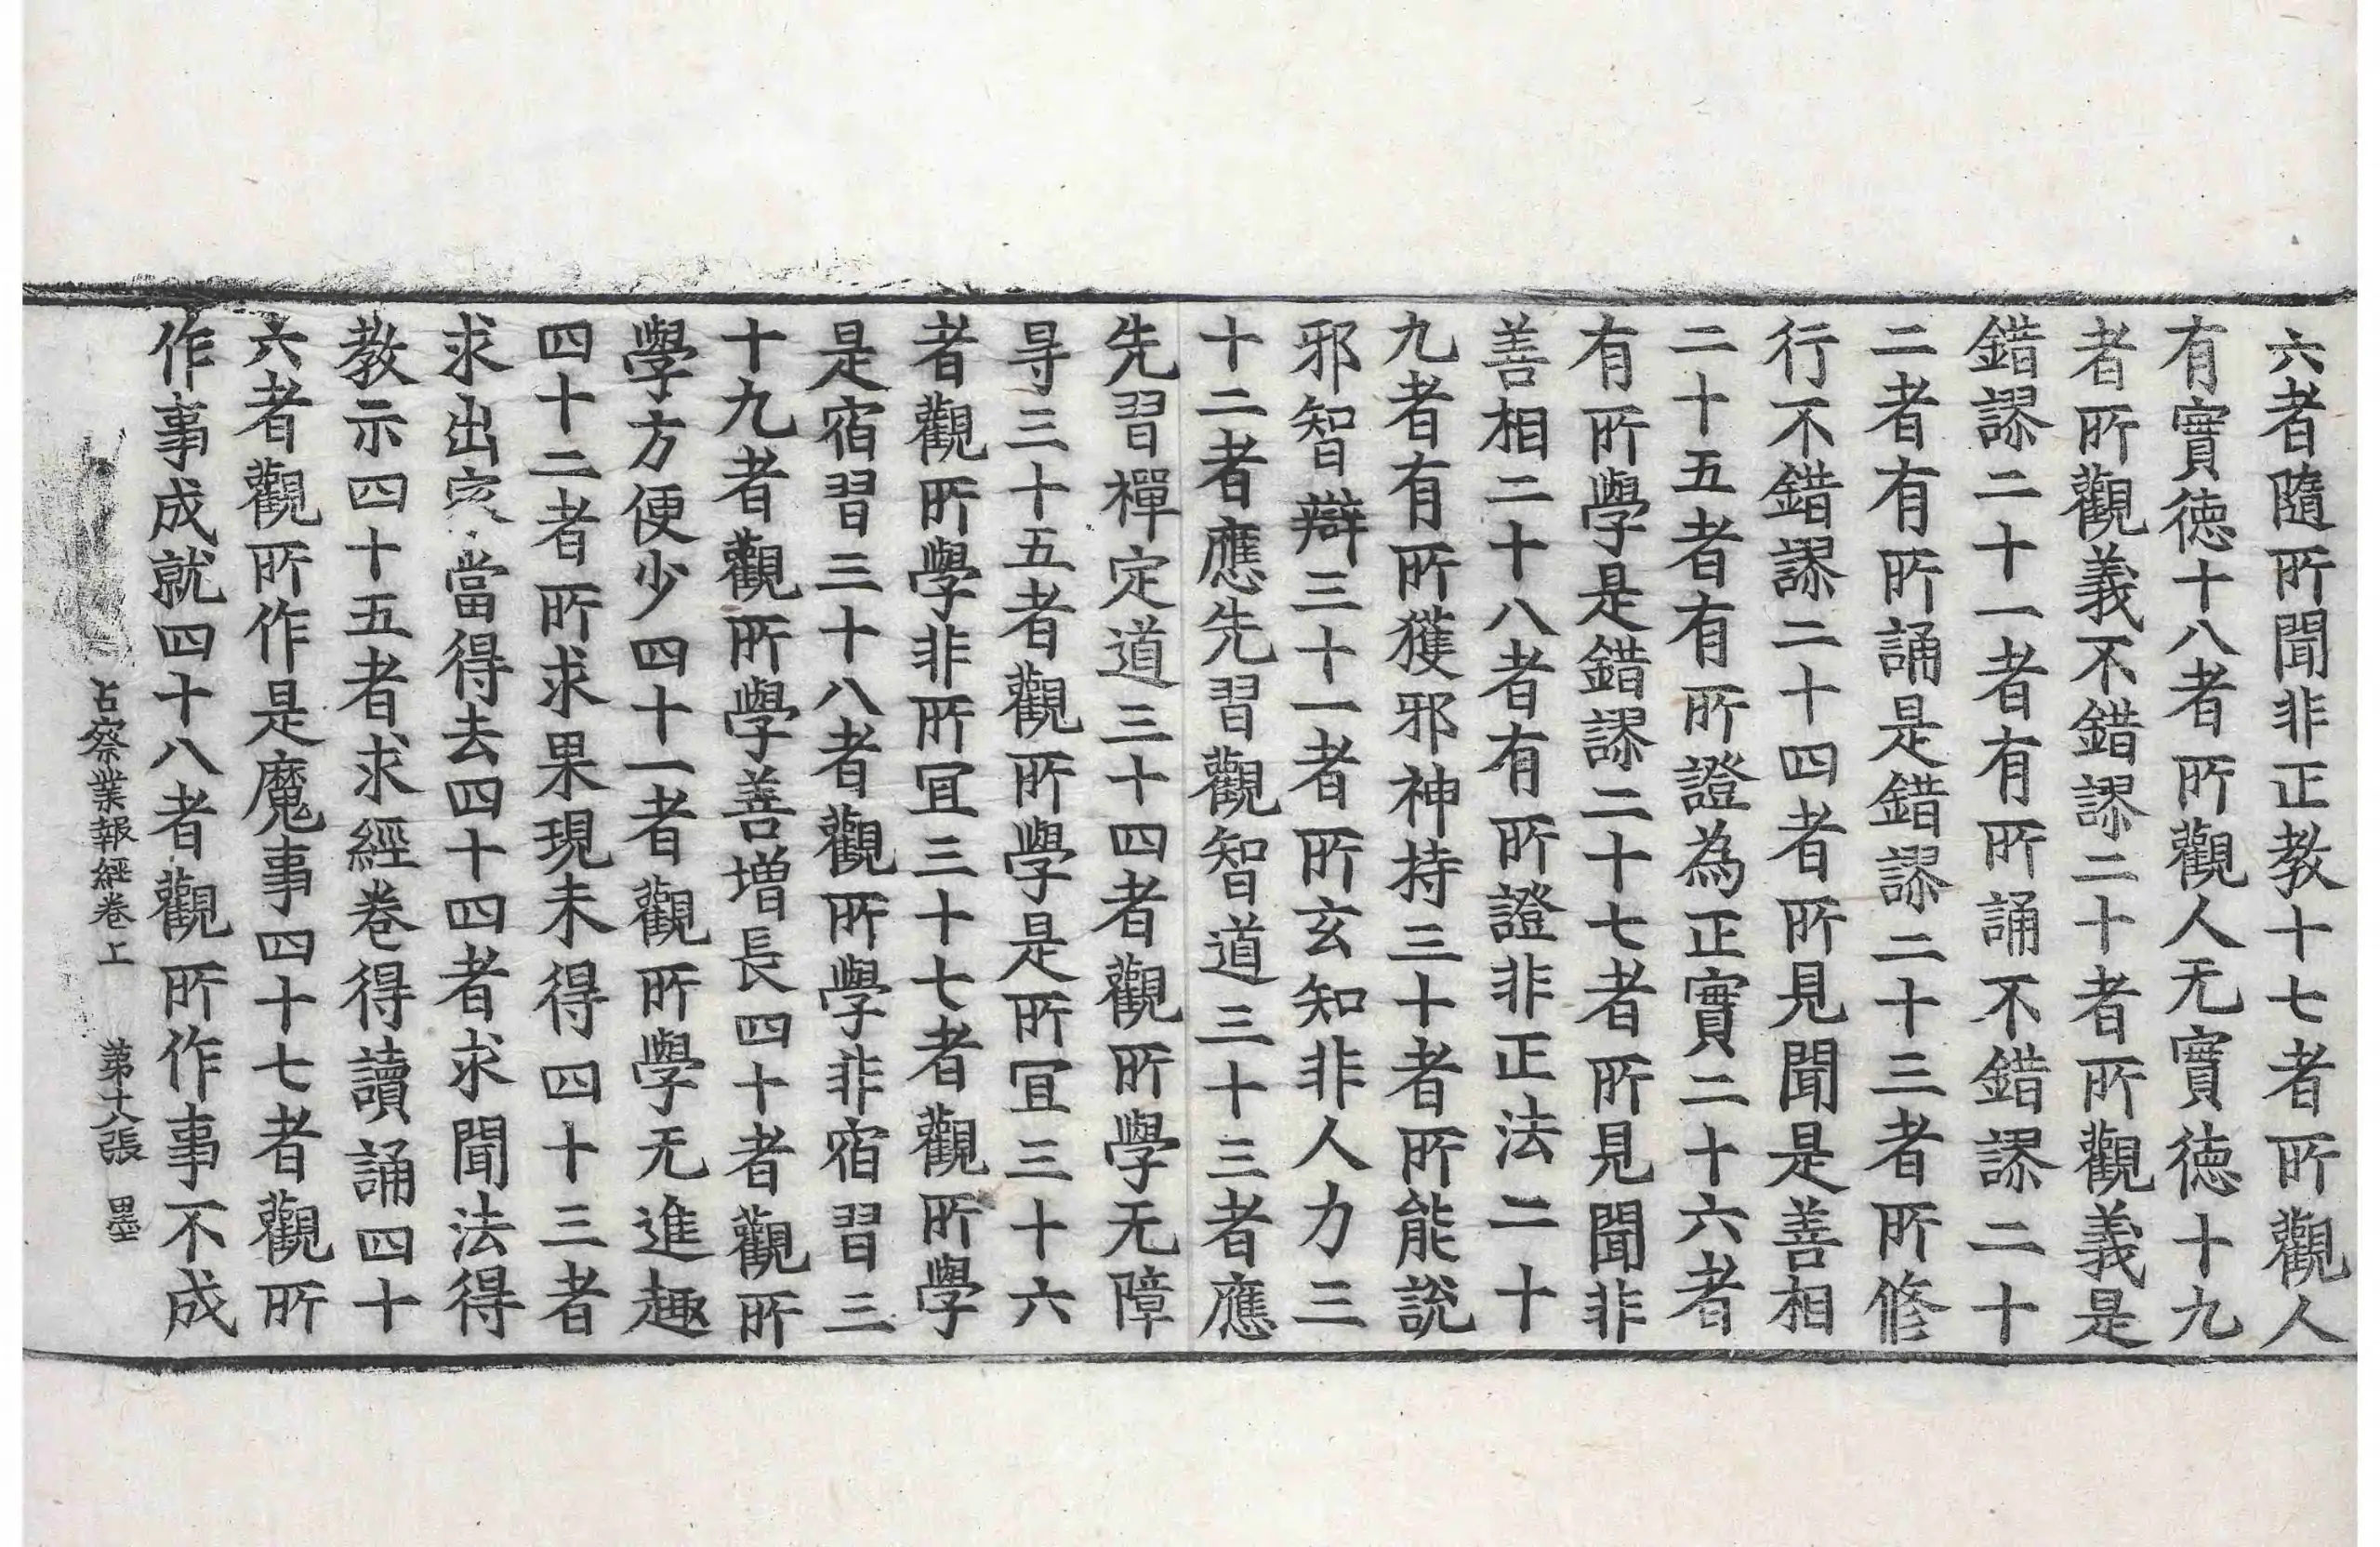 六者隨所聞非正教十七者所觀人
有實德十八者所觀人无實德十九
者所觀義不錯謬二十者所觀義是
錯謬二十一者有所誦不錯謬二十
二者有所誦是錯謬二十三者所修
行不錯謬二十四者所見聞是善相
二十五者有所證為正實二十六者
有所學是錯謬二十七者所見聞非
善相二十八者有所證非正法二十
九者有所獲邪神持三十者所能說
邪智辯三十一者所玄知非人力三
十二者應先習觀智道三十三者應
先習禪定道三十四者觀所學无障
㝵三十五者觀所學是所冝三十六
者觀所學非所冝三十七者觀所學
是宿習三十八者觀所學非宿習三
十九者觀所學善增長四十者觀所
學方便少四十一者觀所學无進趣
四十二者所求果現未得四十三者
求出家當得去四十四者求聞法得
教示四十五者求經卷得讀誦四十
六者觀所作是魔事四十七者觀所
作事成就四十八者觀所作事不成
占察業報經卷上 第十八張 墨